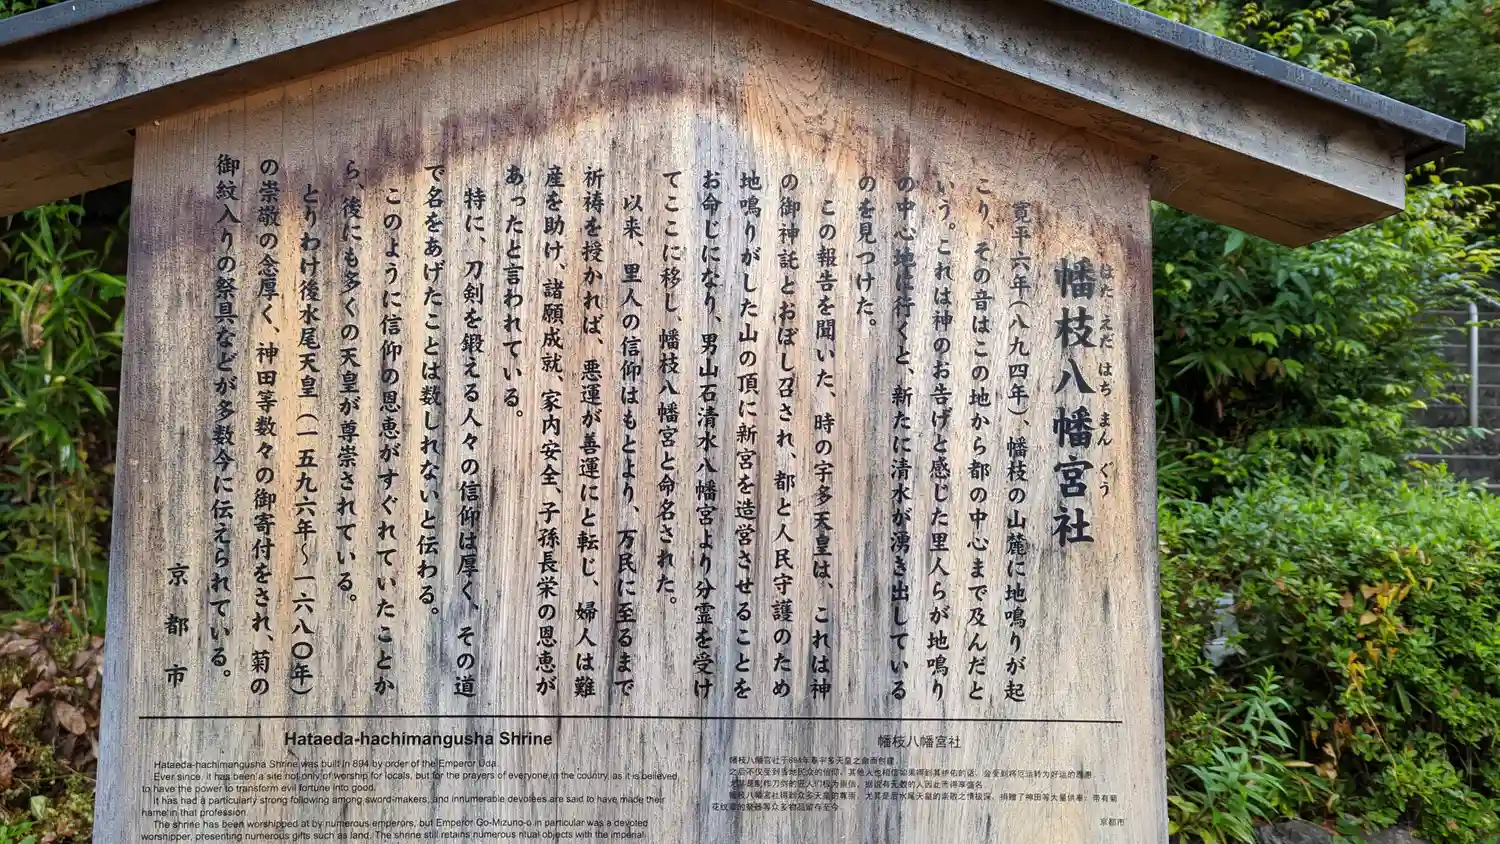 幡枝八幡宮社
はた えだ はち まん ぐう
寛平六年(八九四年)、幡枝の山麓に地鳴りが起
こり、その音はこの地から都の中心まで及んだと
いう。これは神のお告げと感じた里人らが地鳴り
の中心地に行くと、新たに清水が湧き出している
のを見つけた。
この報告を聞いた、時の宇多天皇は、これは神
の御神託とおぼし召され、都と人民守護のため
地鳴りがした山の頂に新宮を造営させることを
お命じになり、男山石清水八幡宮より分霊を受け
てここに移し、幡枝八幡宮と命名された。
以来、里人の信仰はもとより、万民に至るまで
祈祷を授かれば、悪運が善運にと転じ、婦人は難
産を助け、諸願成就、家内安全、子孫長栄の恩恵が
あったと言われている。
特に、刀剣を鍛える人々の信仰は厚く、その道
で名をあげたことは数しれないと伝わる。
このように信仰の恩恵がすぐれていたことか
ら、後にも多くの天皇が尊崇されている。
とりわけ後水尾天皇(一五九六年〜一六八〇年)
の崇敬の念厚く、神田等数々の御寄付をされ、菊の
御紋入りの祭具などが多数今に伝えられている。
京都市
Hataeda-hachimangusha Shrine
Hataeda-hachimangusha Shrine was built in 894 by order of the Emperor Uda.
Ever since, it has been a site not only of worship for locals, but for the prayers of everyone in the country, as it is believed
to have the power to transform evil fortune into good.
It has had a particularly strong following among sword-makers, and innumerable devotees are said to have made their
name in that profession.
The shrine has been worshipped at by numerous emperors, but Emperor Go-Mizuno-o in particular was a devoted
worshipper, presenting numerous gifts such as land. The shrine still retains numerous ritual objects with the imperial
幡枝八幡宮社
幡枝八幡宫社于894年奉宇多天皇之命而创建。
之后不仅受到当地民众的信仰，其他人也相信如果得到其祈佑的话，会受到将厄运转为好运的恩惠
尤其是制作刀剑的匠人们极为崇信，据说有无数的人因此而得享盛名
幡枝八幡宫社得到众多天皇的尊崇，尤其是后水尾天皇的崇敬之情极深，捐赠了神田等大量供奉；带有菊
花纹章的祭器等众多物品留存至今
京都市